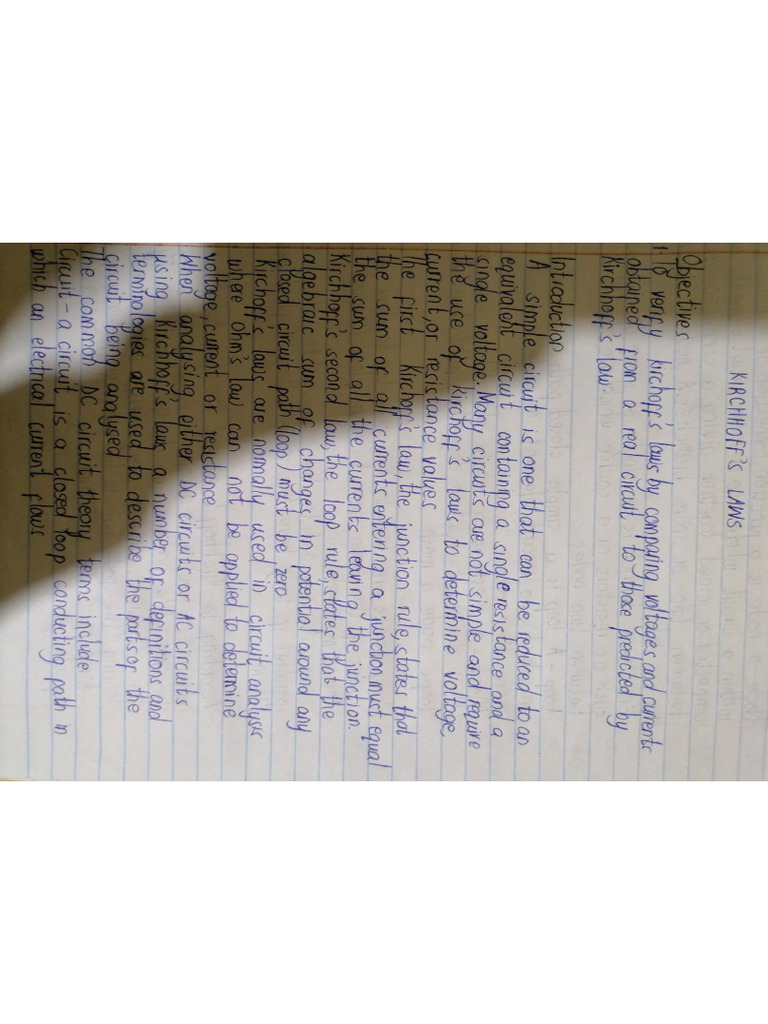 KIRCHHOFF'S LAWS
Objectives
1 To verify kirchoff's laws by comparing voltages and currents
obtained from a real circuit to those predicted by
Kirchoff's law.
Introduction
A simple circuit is one that can be reduced to an
equivalent circuit containing a single resistance and a
single voltage. Many circuits are not simple and require
the use of Kirchoff's laws to determine voltage,
current, or resistance values
The first Kirchoff's law, the junction rule, states that
the sum of all currents entering a junction must equal
the sum of all the currents leaving the junction.
Kirchoff's second law, the loop rule, states that the
algebraic sum of changes in potential around any
closed circuit path (loop) must be zero
Kirchoff's laws are normally used in circuit analysis
where Ohm's law can not be applied to determine
voltage, current or resistance
When analysing either DC circuits or AC circuits
using Kirchoff's laws a number of definitions and
terminologies are used to describe the parts of the
circuit being analysed
The common DC circuit theory terms include
Circuit - a circuit is a closed loop conducting path in
which an electrical current flows